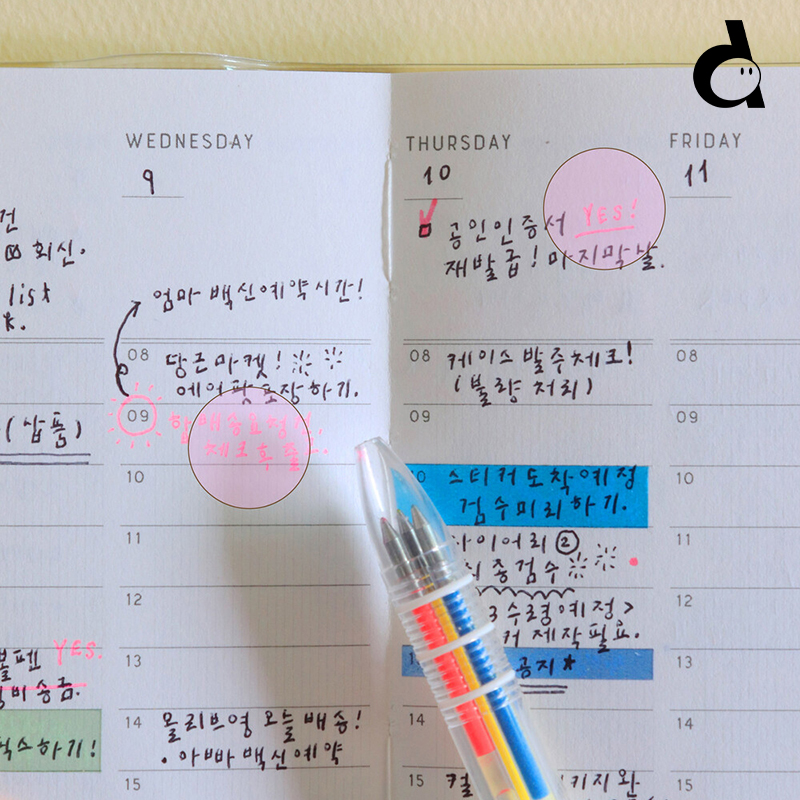 WEDNESDAY
9
엄마 백신예약시간!
08 당근마켓!
에어팟포장하기.
09
10
11
12
13
14 올리브영 오늘배송!
· 아빠백신예약
15
건
회신.
list
(삽품)
볼펜 YES.
송금.
하기!
THURSDAY
10
공인인증서 YES!
재발급! 마지막날.
08 케이스발주체크!
(불량처리)
09
스티커도착예정
검수미리하기.
다이어리②
종검수
수령예정>
제작필요.
공지★
14
15
FRIDAY
11
08
09
10
11
12
13
14
15